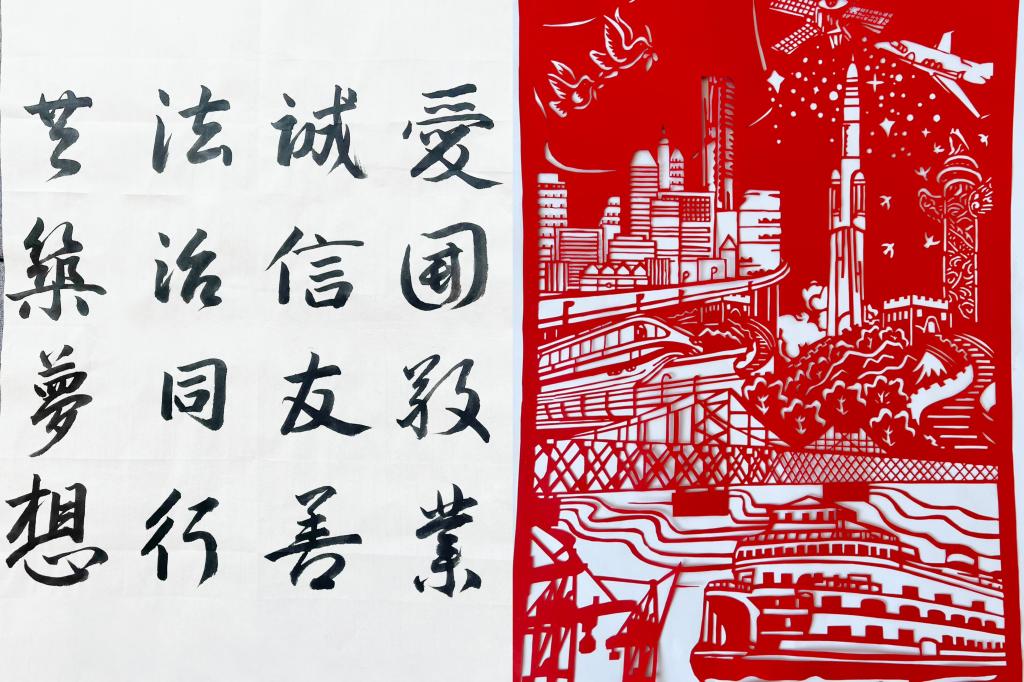 愛國敬業
誠信友善
法治同行
共築夢想